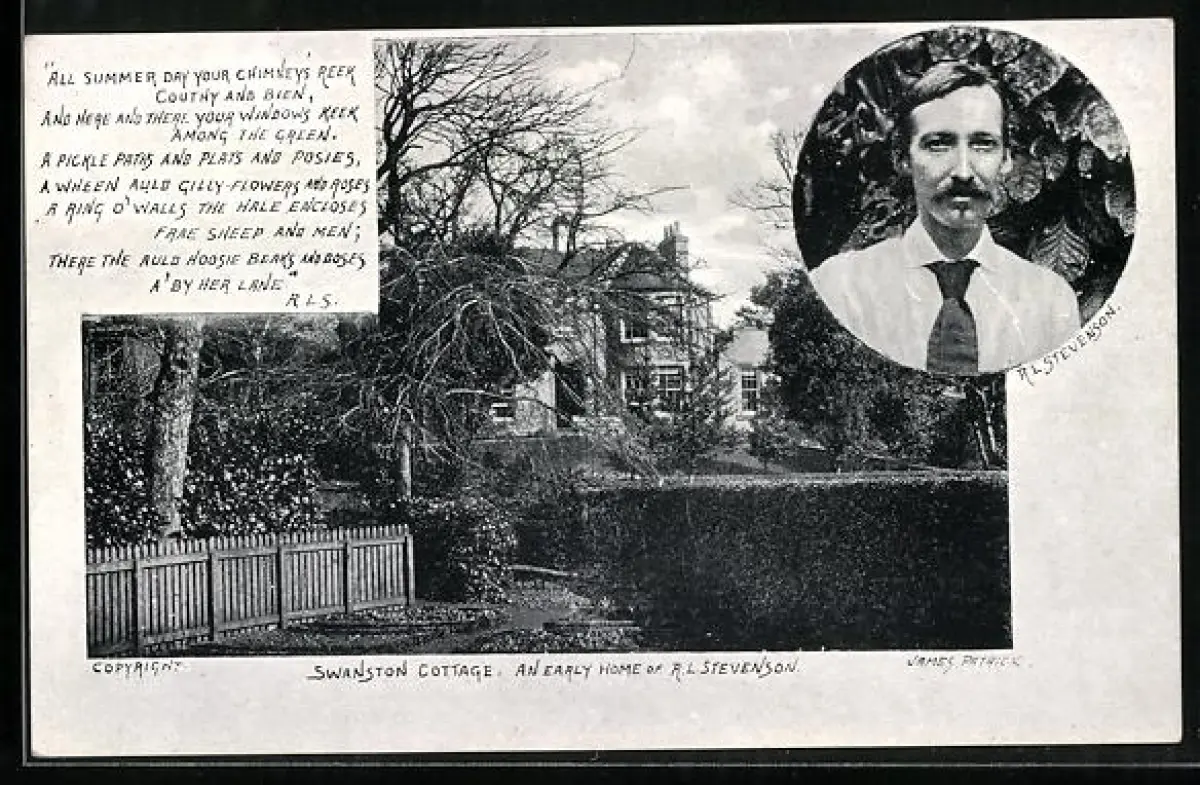 "ALL SUMMER DAY YOUR CHIMNEYS REEK
COUTHY AND BIEN,
AND HERE AND THERE YOUR WINDOWS KEEK
AMONG THE GREEN.
A PICKLE PATHS AND PLATS AND POSIES,
A WHEEN AULD GILLY-FLOWERS AND ROSES
A RING O' WALLS THE HALE ENCLOSES
FRAE SHEEP AND MEN;
THERE THE AULD HOOSIE BEAKS AND DOSES
A' BY HER LANE"
R L S.
R L STEVENSON.
COPYRIGHT
SWANSTON COTTAGE. AN EARLY HOME OF R. L STEVENSON.
JAMES PATRICK.